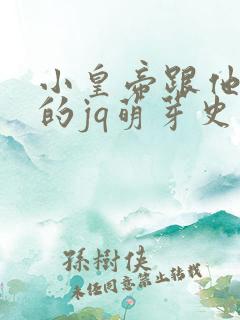 小皇帝跟他
的jq萌芽史
孫樹侠
未经同意禁止转载